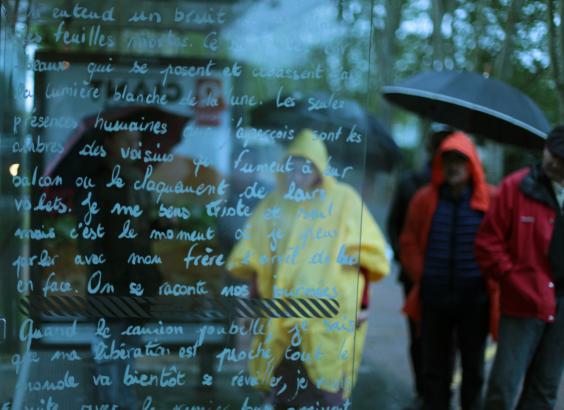 entend un bruit
les feuilles mortes. Ce
qui se posent et croassent
la lumière blanche de la lune. Les seules
présences humaines que j'aperçois sont les
ombres des voisins qui fument à leur
balcon ou le claquement de leurs
volets. Je me sens triste et seul
mais c'est le moment où je peux
parler avec mon frère l'arrêt de bus
en face. On se raconte nos journées
Quand le camion poubelle je sais
que ma libération est proche, tout le
monde va bientôt se réveiller, je